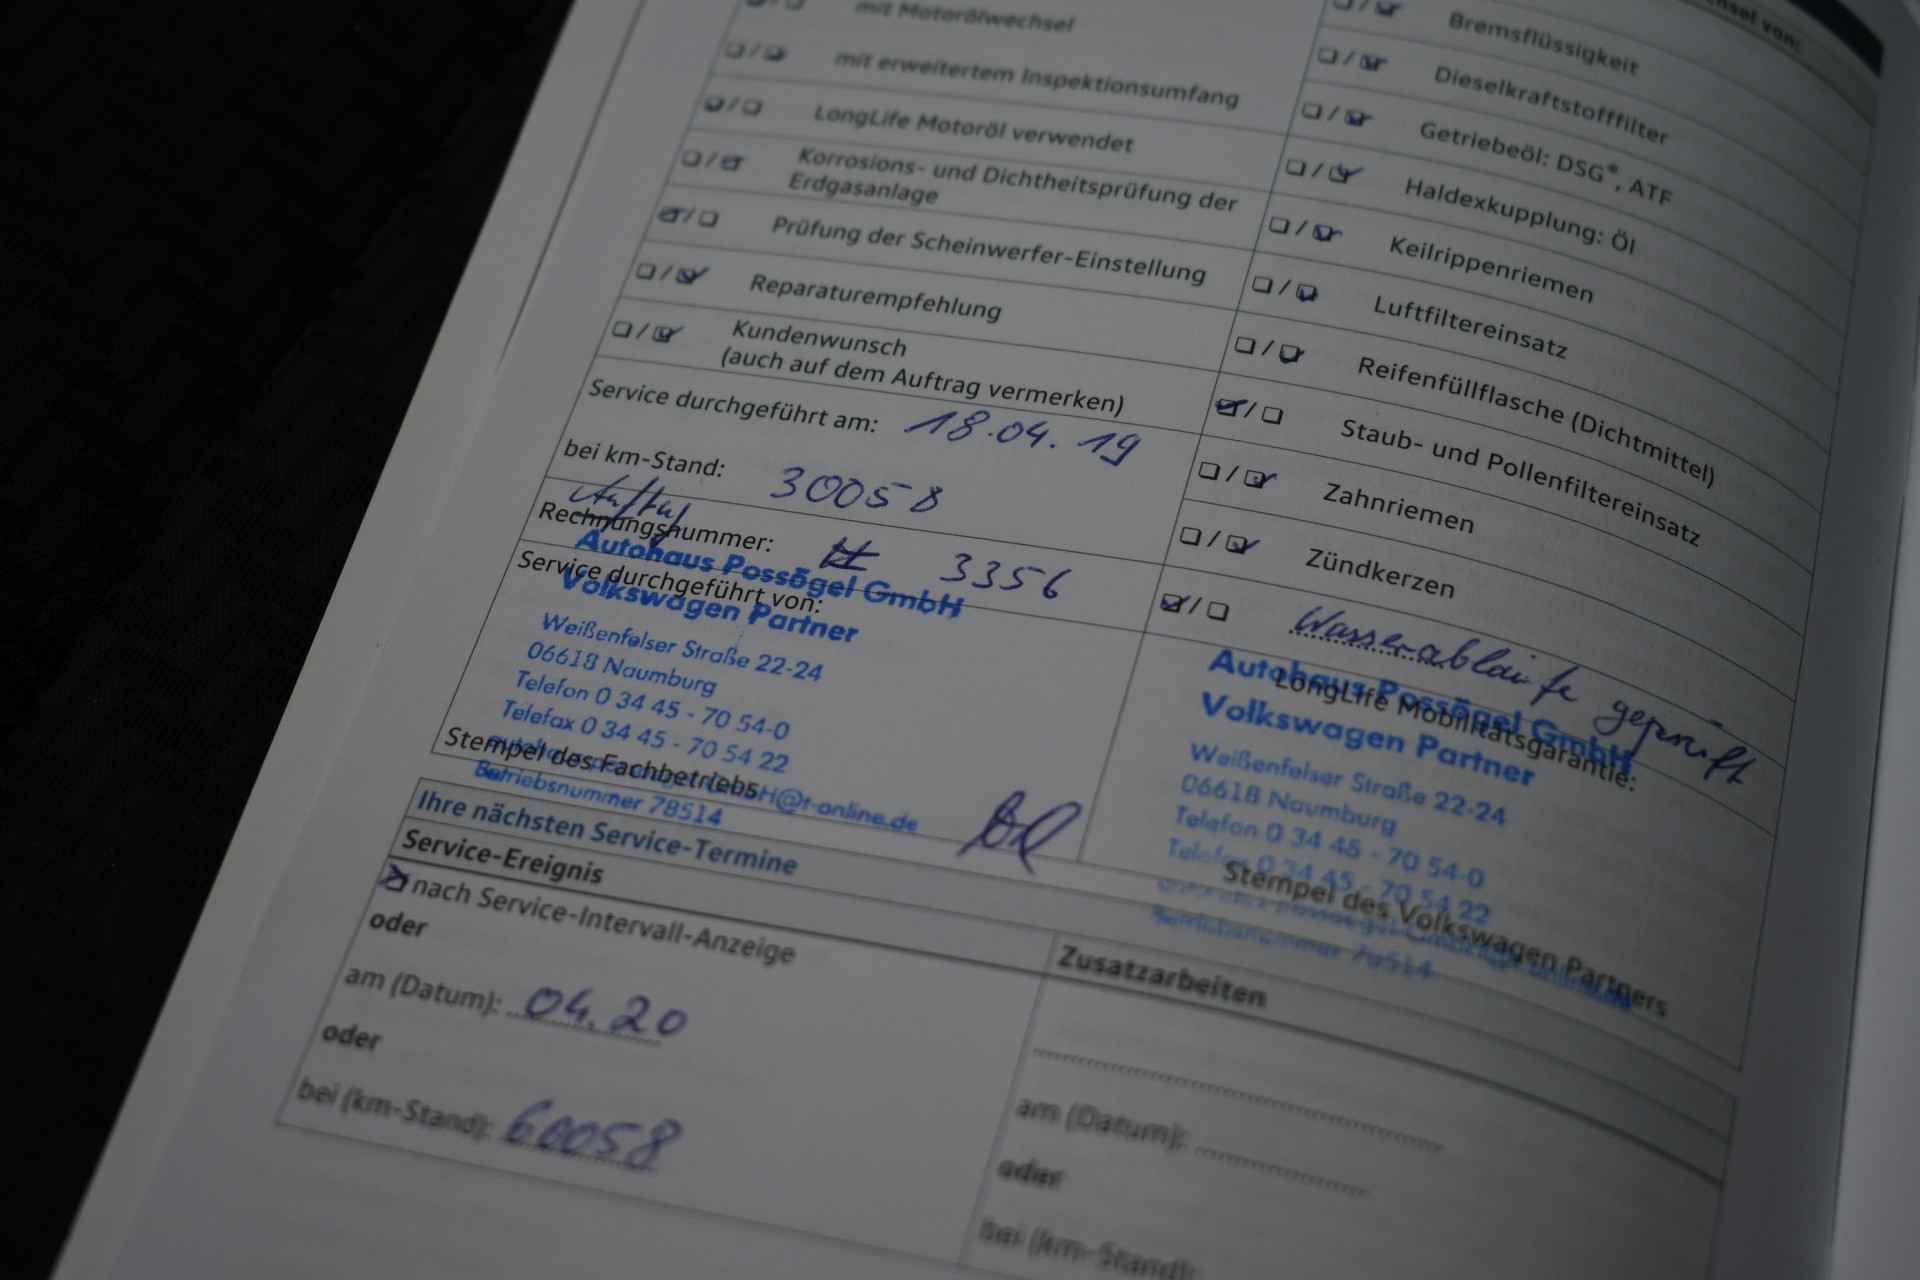 mit Motorölwechsel
mit erweitertem Inspektionsumfang
LongLife Motoröl verwendet
Korrosions- und Dichtheitsprüfung der
Erdgasanlage
Prüfung der Scheinwerfer-Einstellung
Reparaturempfehlung
Kundenwunsch
(auch auf dem Auftrag vermerken)
Service durchgeführt am: 18.04.19
bei km-Stand: 30058
Auftrag
Rechnungsnummer: 3356
Service durchgeführt von:
Autohaus Possögel GmbH
Volkswagen Partner
Weißenfelser Straße 22-24
06618 Naumburg
Telefon 0 34 45 - 70 54-0
Telefax 0 34 45 - 70 54 22
@t-online.de
Betriebsnummer 78514
Stempel des Fachbetriebs
von:
Bremsflüssigkeit
Dieselkraftstofffilter
Getriebeöl: DSG®, ATF
Haldexkupplung: Öl
Keilrippenriemen
Luftfiltereinsatz
Reifenfüllflasche (Dichtmittel)
Staub- und Pollenfiltereinsatz
Zahnriemen
Zündkerzen
Wasserabläufe geprüft
LongLife Mobilitätsgarantie:
Autohaus Possögel GmbH
Volkswagen Partner
Weißenfelser Straße 22-24
06618 Naumburg
Telefon 0 34 45 - 70 54-0
Telefax 0 34 45 - 70 54 22
Betriebsnummer 78514
Stempel des Volkswagen Partners
Ihre nächsten Service-Termine
Service-Ereignis
nach Service-Intervall-Anzeige
oder
am (Datum): 04.20
oder
bei (km-Stand): 60058
Zusatzarbeiten
am (Datum):
oder
bei (km-Stand):